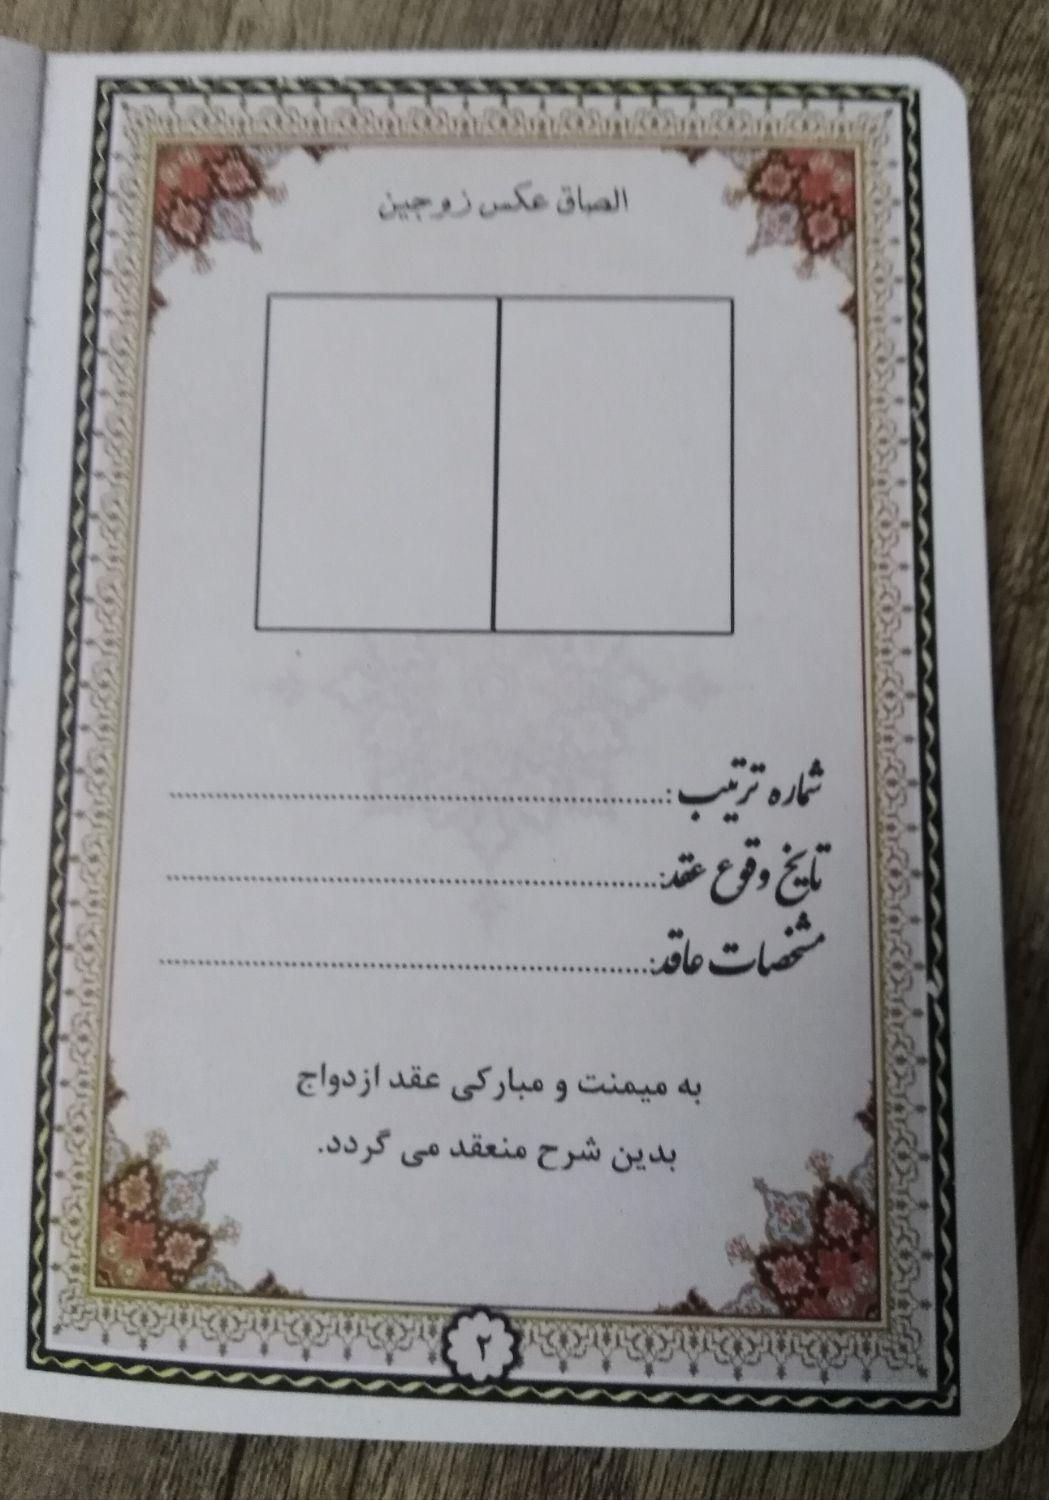 الصاق عکس زوجین
شماره ترتیب :..........................................................
تاریخ وقوع عقد:..........................................................
مشخصات عاقد:..........................................................
به میمنت و مبارکی عقد ازدواج
بدین شرح منعقد می گردد.
۲